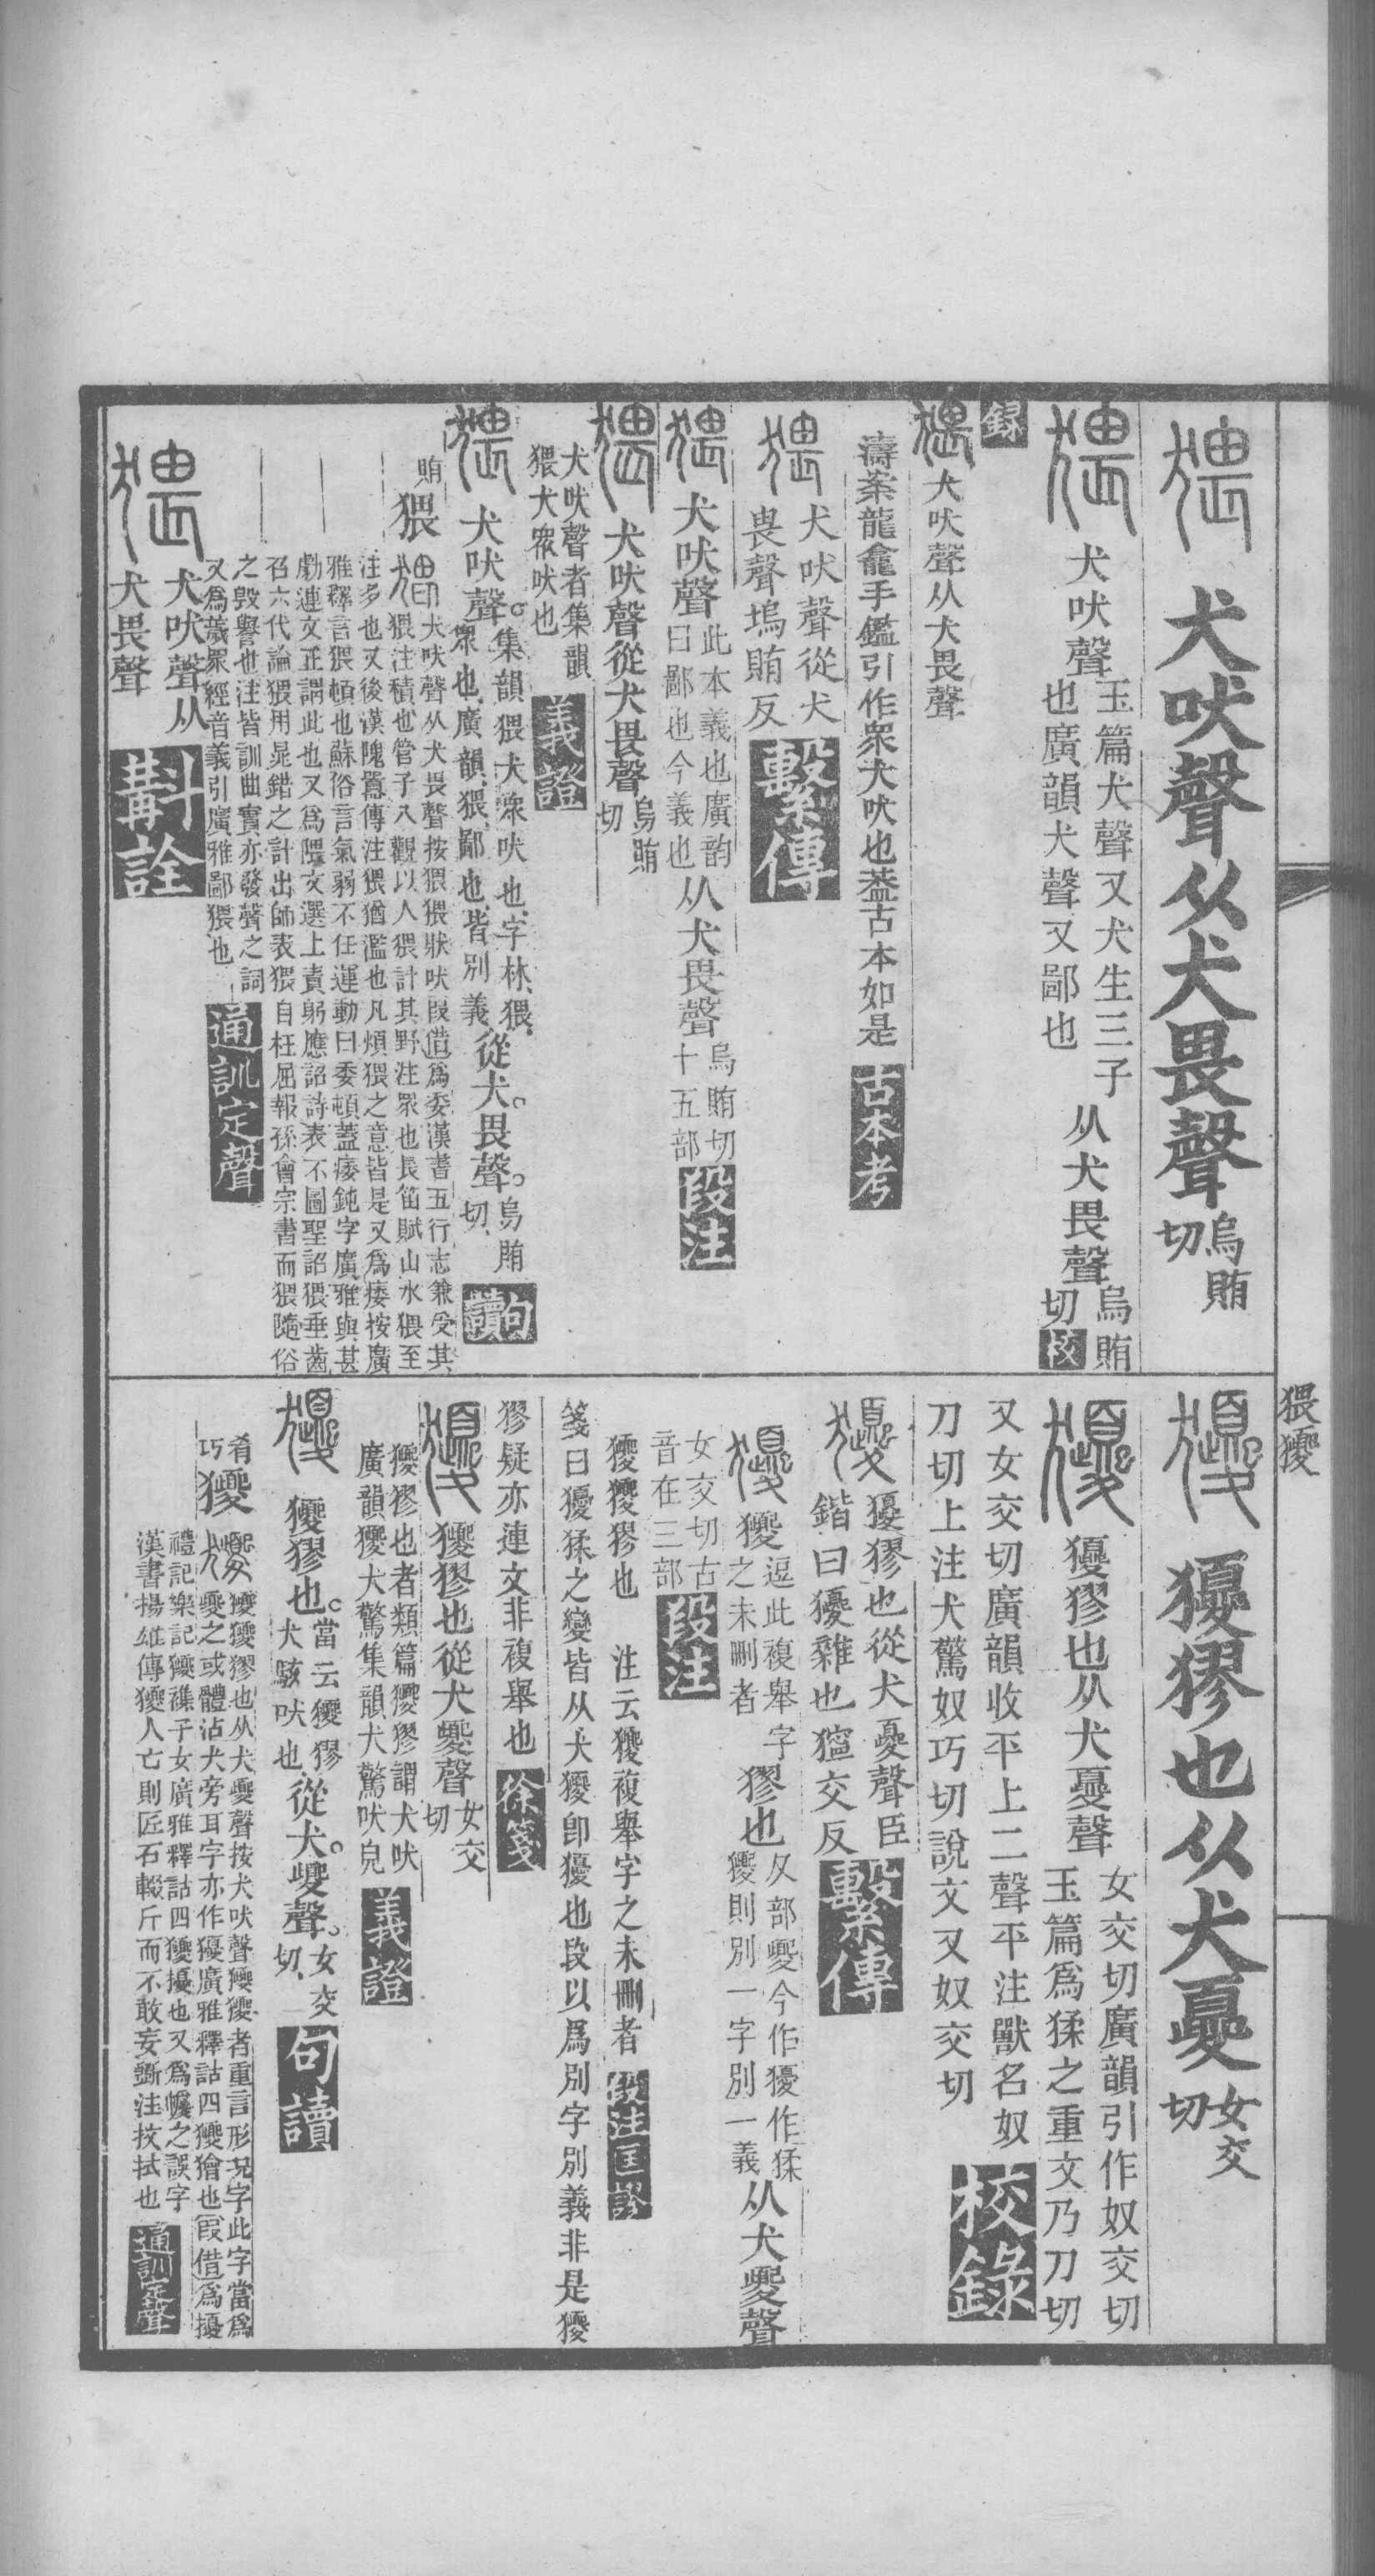 猥獿
犬吠聲从犬畏聲烏賄切
犬吠聲玉篇犬聲又犬生三子也廣韻犬聲又鄙也从犬畏聲烏賄切校
錄
犬吠聲从犬畏聲
濤案龍龕手鑑引作衆犬吠也葢古本如是 古本考
犬吠聲從犬畏聲塢賄反 繫傳
犬吠聲此本義也廣韵曰鄙也今義也从犬畏聲烏賄切十五部 段注
犬吠聲從犬畏聲烏賄切
犬吠聲者集韻猥犬衆吠也 義證
犬吠聲集韻猥犬衆吠也字林猥衆也廣韻猥鄙也皆別義從犬畏聲烏賄切 句讀
猥 賄
犬吠聲从犬畏聲按猥猥狀吠叚借爲委漢書五行志兼受其
猥注積也管子八觀以人猥計其野注眾也長笛賦山水猥至
注多也又後漢隗囂傳注猥猶濫也凡煩猥之意皆是又爲痿按廣
雅釋言猥頓也蘇俗言氣弱不任運動曰委頓蓋痿鈍字廣雅與甚
劇連文正謂此也又爲隈文選上責躬應詔詩表不圖聖詔猥垂齒
召六代論猥用晁錯之計出師表猥自枉屈報孫會宗書而猥隨俗
之毀譽也注皆訓曲實亦發聲之詞
又爲䓝眾經音義引廣雅鄙猥也 通訓定聲
犬吠聲从犬畏聲 斠詮
獿獿也从犬憂女交切
獿獿也从犬憂聲女交切廣韻引作奴交切玉篇爲猱之重文乃刀切
又女交切廣韻收平上二聲平注獸名奴
刀切上注犬驚奴巧切說文又奴交切 校錄
獿獿也從犬憂聲臣鍇曰獿雜也獰交反 繫傳
獿逗此複舉字之未刪者獿也夊部夒今作獿作猱獿則別一字別一義从犬夒聲
女交切古音在三部 段注
獿獿獿也 注云獿複舉字之未刪者 段注匡謬
箋曰獿猱之變皆从犬獿卽獿也段以爲別字別義非是獿
獿疑亦連文非複舉也 徐箋
獿獿也從犬夒聲女交切
獿獿也者類篇獿獿謂犬吠廣韻獿犬驚集韻犬驚吠皃 義證
獿獿也當云獿獿犬駭吠也從犬夒聲女交切 句讀
獿 肴巧
獿獿也从犬夒聲按犬吠聲獿獿者重言形況字此字當爲
夒之或體沾犬旁耳字亦作獿廣雅釋詁四獿獪也叚借爲擾
禮記樂記獿雜子女廣雅釋詁四獿擾也又爲幔之誤字
漢書揚雄傳獿人亡則匠石輟斤而不敢妄斲注抆拭也 通訓定聲